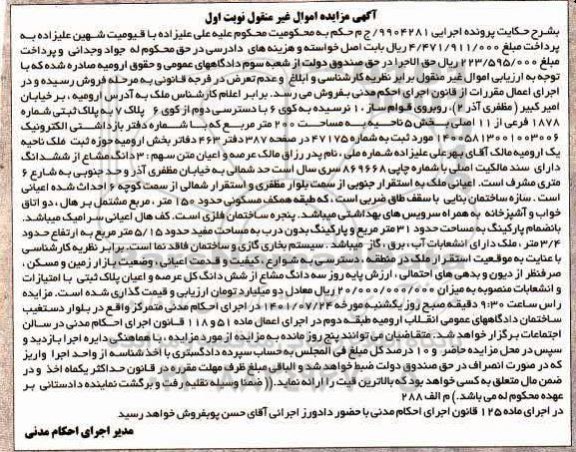 آگهی مزایده اموال غیر منقول نوبت اول
بشرح حکایت پرونده اجرایی 9904281/ج م حکم به محکومیت محکوم علیه علی علیزاده با قیومیت شهین علیزاده به
پرداخت مبلغ 4/471/911/000 ریال بابت اصل خواسته و هزینه های دادرسی در حق محکوم له جواد وجدانی و پرداخت
مبلغ 223/595/000 ریال حق الاجرا در حق صندوق دولت از شعبه سوم دادگاههای عمومی و حقوق ارومیه صادره شده که با
توجه به ارزیابی اموال غیر منقول برابر نظریه کارشناسی و ابلاغ و عدم تعرض در فرجه قانونی به مرحله فروش رسیده و در
اجرای اعمال مقررات از قانون اجرای احکام مدنی بفروش می رسد. برابر اعلام کارشناس ملک به آدرس ارومیه ، بر خیابان
امیر کبیر (مظفری آذر 2)، روبروی قوام ساز ،10 نرسیده به کوی 6 با دسترسی دوم از کوی 6 پلاک 7 به پلاک ثبتی شماره
1878 فرعی از 11 اصلی بخش 5 ناحیه به مساحت 200 متر مربع که با شماره دفتر بازداشتی الکترونیک
140005813001003006 مورد ثبت به شماره 47175 در صفحه 387 دفتر 462 دفاتر بخش ارومیه حوزه ثبت ملک ناحیه
یک ارومیه مالک آقای بهر علی علیزاده شماره ملی ، نام پدر رزاق مالک عرصه و اعیان متن سهم : 3 دانگ مشاع از ششدانگ
دارای سند مالکیت اصلی با شماره چاپی 869668 سری سال است حد شمالی به خیابان مظفری آذر و حد جنوبی به شارع 6
متری مشرف است. اعیانی ملک به استقرار جنوبی از سمت بلوار مظفری و استقرار شمالی از سمت کوچه 6 احداث شده اعیانی
است . سازه ساختمان بنایی با سقف طاق ضربی است ، که طبقه همکف مسکونی حدود 150 متر ، مربع مشتمل بر هال ، دو اتاق
خواب و آشپزخانه به همراه سرویس های بهداشتی میباشد. پنجره ساختمان فلزی است. کف هال اعیانی سرامیک میباشد.
بانضمام پارکینگ به مساحت حدود 31 متر مربع و پارکینگ بدون درب به مساحت مفید حدود 5/15 متر مربع به ارتفاع حدود
3/4 متر ، ملک دارای انشعابات آب ، برق ، گاز میباشد . سیستم بخاری گازی و ساختمان فاقد نما است. برابر نظریه کارشناسی
با عنایت به موقعیت استقرار ملک در منطقه ، دسترسی به شوارع ، کیفیت و قدمت اعیانی ، وضعیت بازار زمین و مسکن ،
صرفنظر از دیون و بدهی های احتمالی ، ارزش پایه روز سه دانگ مشاع از شش دانگ کل عرصه و اعیان پلاک ثبتی با امتیازات
و انشعابات منصوبه به میزان 20/000/000/000 ریال معادل دو میلیارد تومان ارزیابی و قیمت گذاری شده است. مزایده
راس ساعت 9:30 دقیقه صبح روز یکشنبه مورخه 1401/07/24 در اجرای احکام مدنی متمرکز واقع در بلوار دستغیب
ساختمان دادگاههای عمومی انقلاب ارومیه طبقه دوم در اجرای اعمال ماده 51 و 118 قانون اجرای احکام مدنی در سالن
اجتماعات برگزار خواهد شد. متقاضیان می توانند پنج روز مانده به مزایده از مورد مزایده با هماهنگی دایره اجرا بازدید و
سپس در محل مزایده حاضر و 10 درصد کل مبلغ فی المجلس به حساب سپرده دادگستری با اخذ شناسه از واحد اجرا واریز
که در صورت انصراف در حق صندوق دولت ضبط خواهد شد و الباقی مبلغ ظرف مهلت مقرره در قانون حداکثر یکماه اخذ و در
ضمن مال متعلق به کسی خواهد بود که بالاترین قیت را ارائه نماید.(( ضمنا وسیله نقلیه رفت و برگشت نماینده دادستانی بر
عهده محکوم له می باشد.) م الف 288
در اجرای ماده 125 قانون اجرای احکام مدنی با حضور دادورز اجرائی آقای حسن پویفروش خواهد رسید
مدیر اجرای احکام مدنی